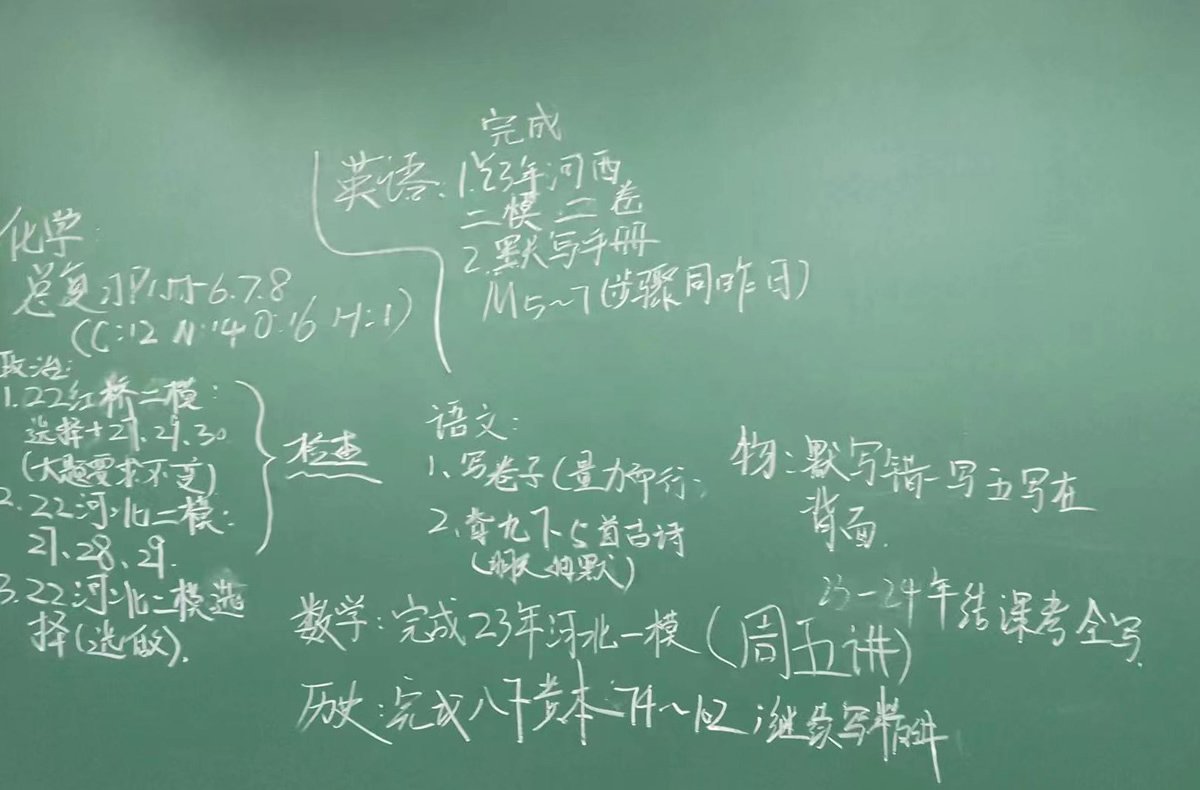 化学:
总复习P157-6.7.8
(C:12 N:14 O:16 H:1)
政治:
1.22红桥二模:
选择+27.29.30
(大题要求不变)
2.22河北二模:
27、28、29.
3.22河北二模选
择(选做).
检查
英语:
完成
1.23年河西
二模 二卷
2.默写手册
M5~7(步骤同昨日)
语文:
1、写卷子(量力而行)
2、九下5首古诗
(明天 默)
物:默写错一写五写在
背面.
23-24年结课考全写
数学:完成23年河北一模(周五讲)
历史:完成八下 本74~102;继续写